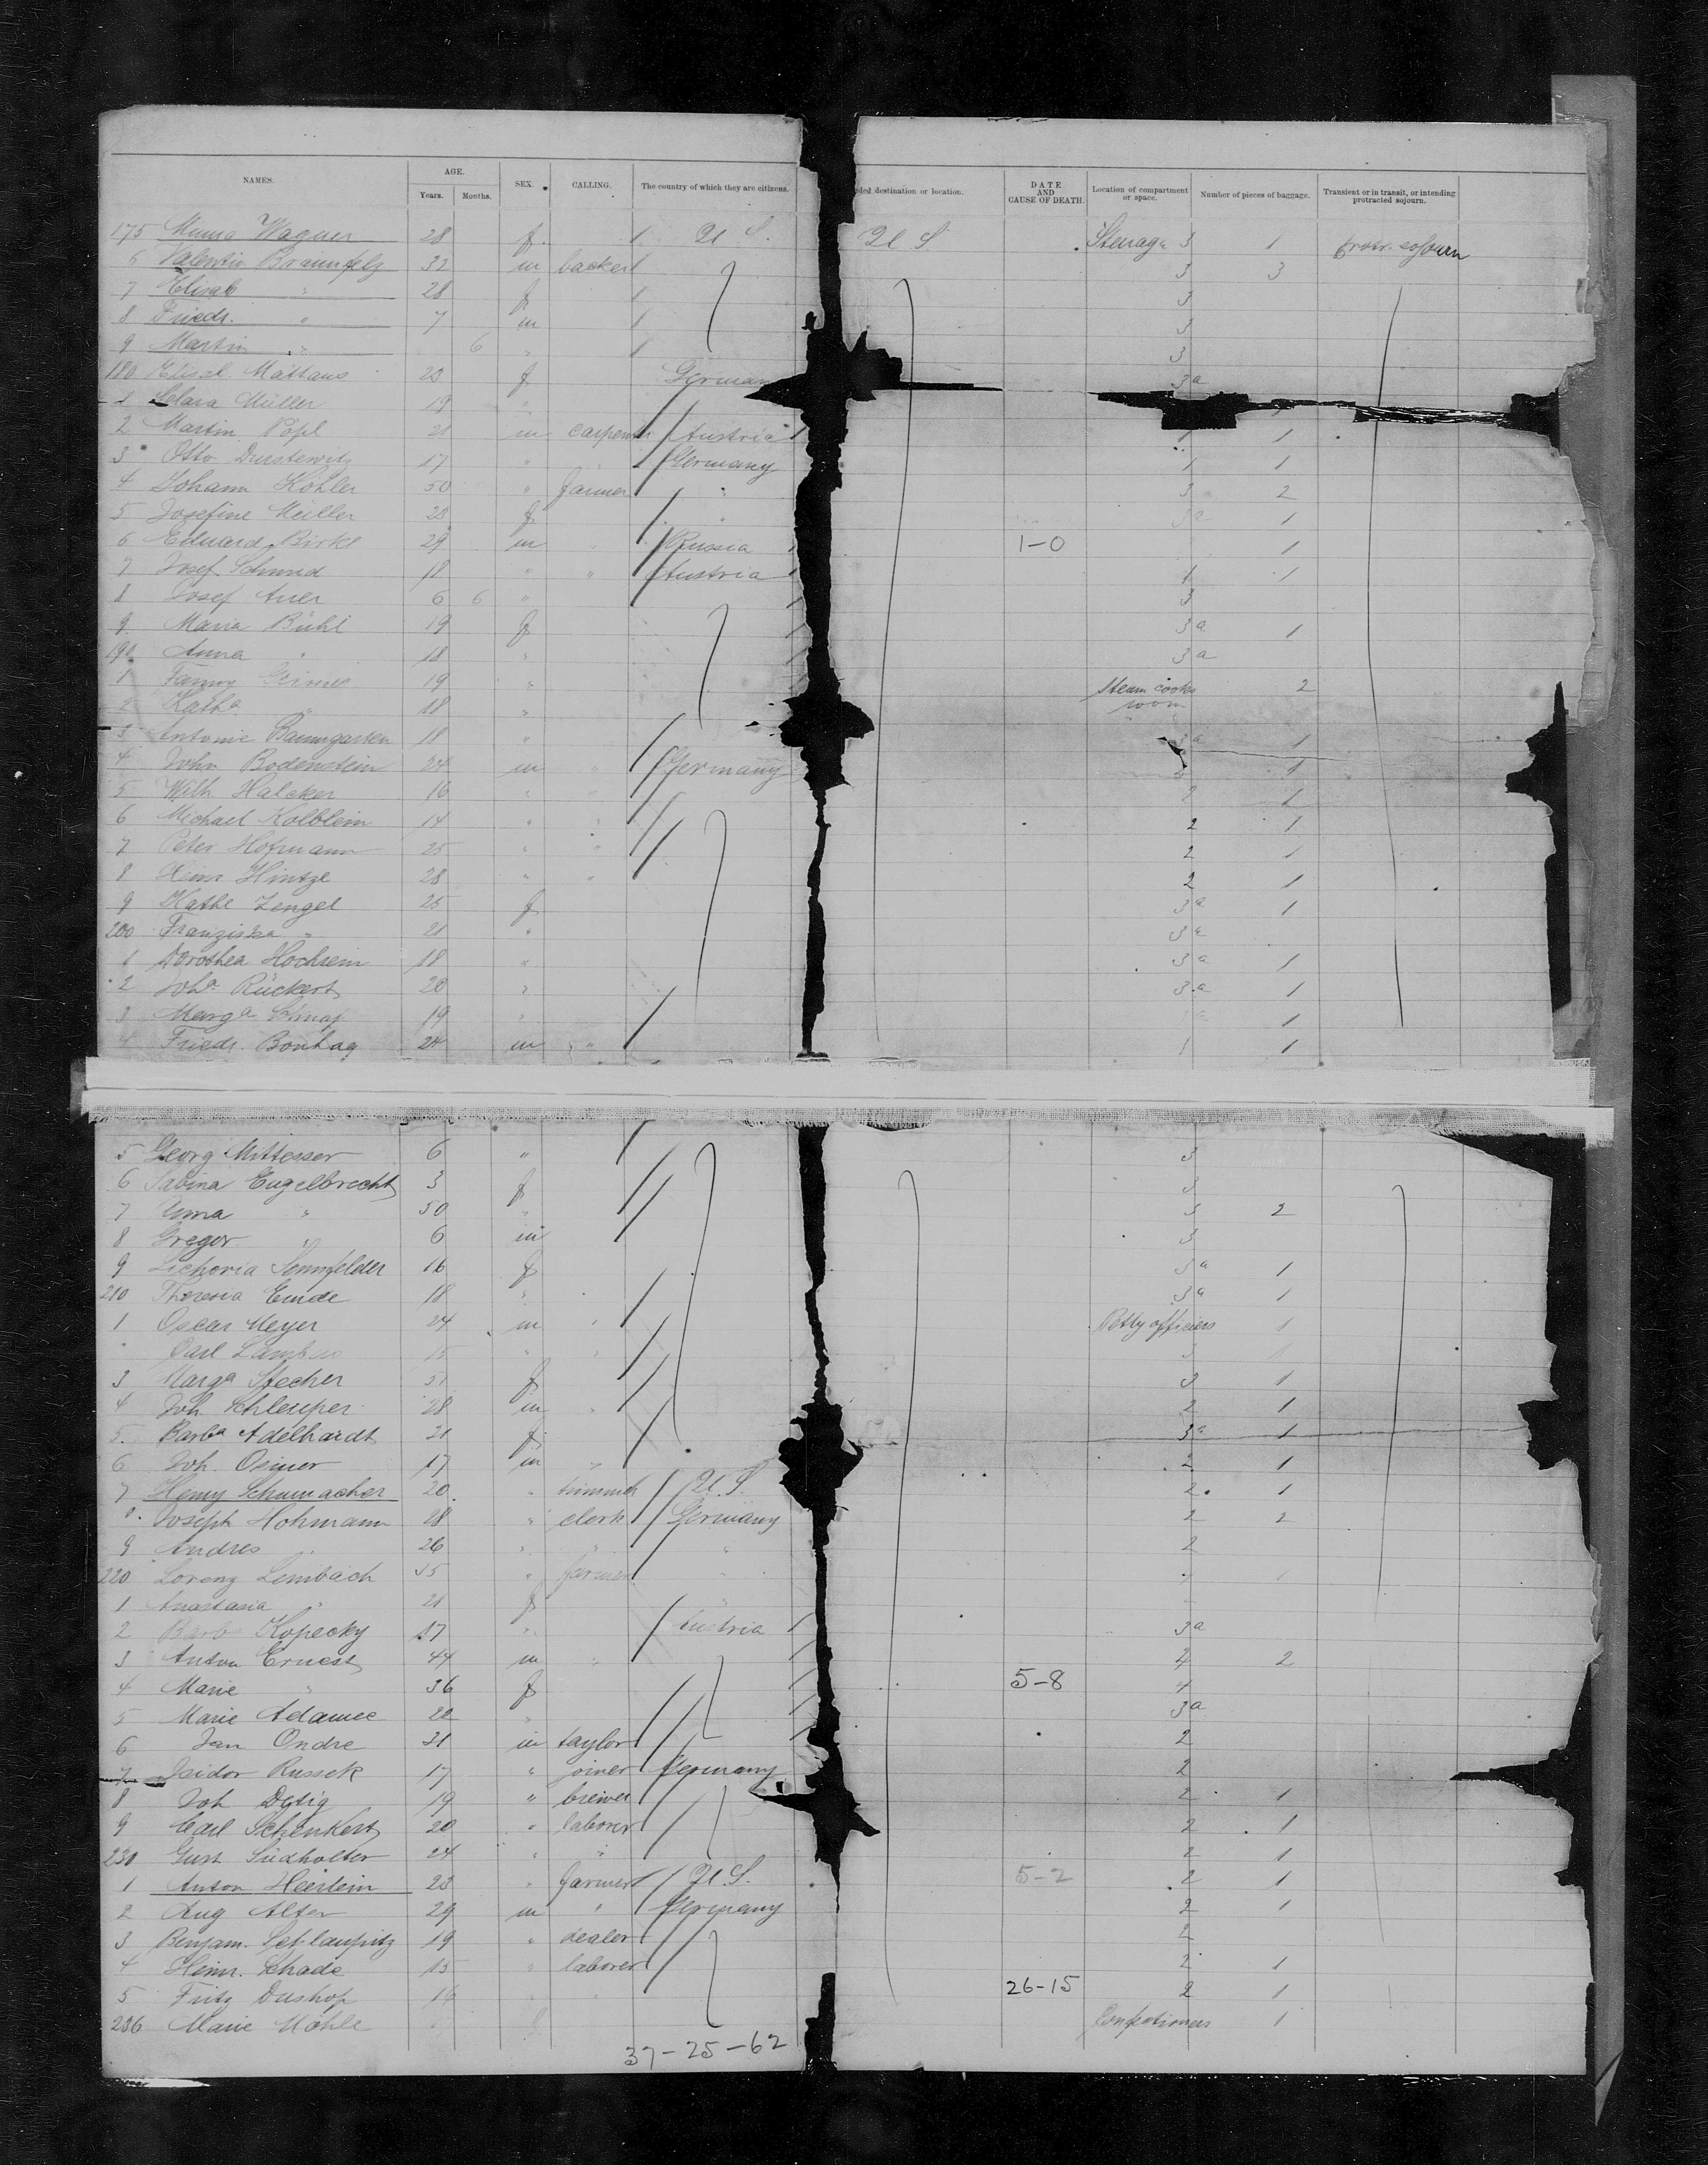 NAMES. AGE. Years. Months. SEX. CALLING. The country of which they are citizens. ded destination or location. DATE AND CAUSE OF DEATH. Location of compartment or space. Number of pieces of baggage. Transient or in transit, or intending protracted sojourn.
175 Minna Wagner 28 f. U S. U S Steerage 3 1 protr. sojourn
6 Valentin Braunfelz 32 m backer 3 3
7 Elisab " 28 f 3
8 Friedr. " 7 m 3
9 Martin " 6 " 3
180 Elisab. Mattaus 23 f German 3a
1 Clara Müller 19 "
2 Martin Popl 21 m carpenter Austria 1 1
3 Otto Durstewitz 17 " Germany 1 1
4 Johann Köhler 50 " farmer " 3 2
5 Josefine Müller 23 f " 3a 1
6 Eduard Birkl 29 m Russia 1-0 1
7 Josef Schmid 18 " " Austria 1 1
8 Josef Auer 6 6 " 3
9 Maria Bühl 19 f 3a 1
190 Anna " 18 " 3a
1 Fanny 19 " steam cooks room 2
2 Katha " 18 " " "
3 Antonie Baumgarten 18 " 3a 1
4 John Bodenstein 24 m " Germany 3 1
5 Wilh Halcker 16 " " 2 1
6 Michael Kolblein 14 " " 2 1
7 Peter Hofmann 25 " " 2 1
8 Heinr Hintze 28 " " 2 1
9 Kathe Zengel 25 f 3a 1
200 Franziska " 21 " 3a
1 Dorothea Hochrein 18 " 3a 1
2 Joha Rückert 20 " 3a 1
3 Marga 19 " 1
4 Friedr. Bonhag 24 m " 1 1
5 Georg Mittesser 6 " 3
6 Sabina Engelbrecht 3 f 3
7 Anna " 30 " 3 2
8 Gregor " 6 m 3
9 Sennfelder 16 f 3a 1
210 Theresia Emde 18 " 3a 1
1 Oscar Meyer 24 m " Petty officers 1
Carl 15 " " 3
3 Marga Stecher 21 f 3 1
4 Joh Schleuper 28 m " 2 1
5 Barba Adelhardt 21 f 3a 1
6 Joh. Osmer 17 m " 2 1
7 Henry Schumacher 20 " U. S. 2 1
8 Joseph Hohmann 28 " clerk Germany 2 2
9 Andres " 26 " " " 2
220 Lorenz Lembach 55 " farmer
1 Anastasia " 21 f
2 Barb Kopecky 17 " Austria 3a
3 Anton Ernest 44 m " 4 2
4 Marie " 36 f 5-8 4
5 Marie Adamec 22 " 3a
6 Jan Ondre 31 m taylor 2
7 Isidor Russek 17 " joiner Germany 2
8 Joh Detig 19 " brewer 2 1
9 Carl Schenkert 20 " laborer 2 1
230 Gust Südholter 24 " " 2 1
1 Anton Heerlein 23 " farmer U. S. 5-2 2 1
2 Aug Alter 29 m " Germany 2 1
3 Benjam. 19 " dealer 2
4 Heinr. Schade 15 " laborer 2 1
5 Fritz Dushop 16 26-15 2 1
236 Marie Mohle Confectioners 1
37-25-62